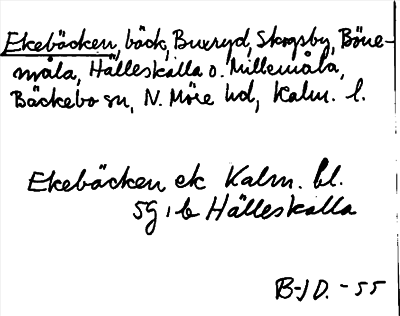 Ekebäcken, bäck, Buxryd, Skogsby, Böne-
måla, Hälleskalla o. Millemåla,
Bäckebo sn, N. Möre hd, Kalm. l.
Ekebäcken ek Kalm. bl.
5g, b Hälleskalla
B-J D. - 55